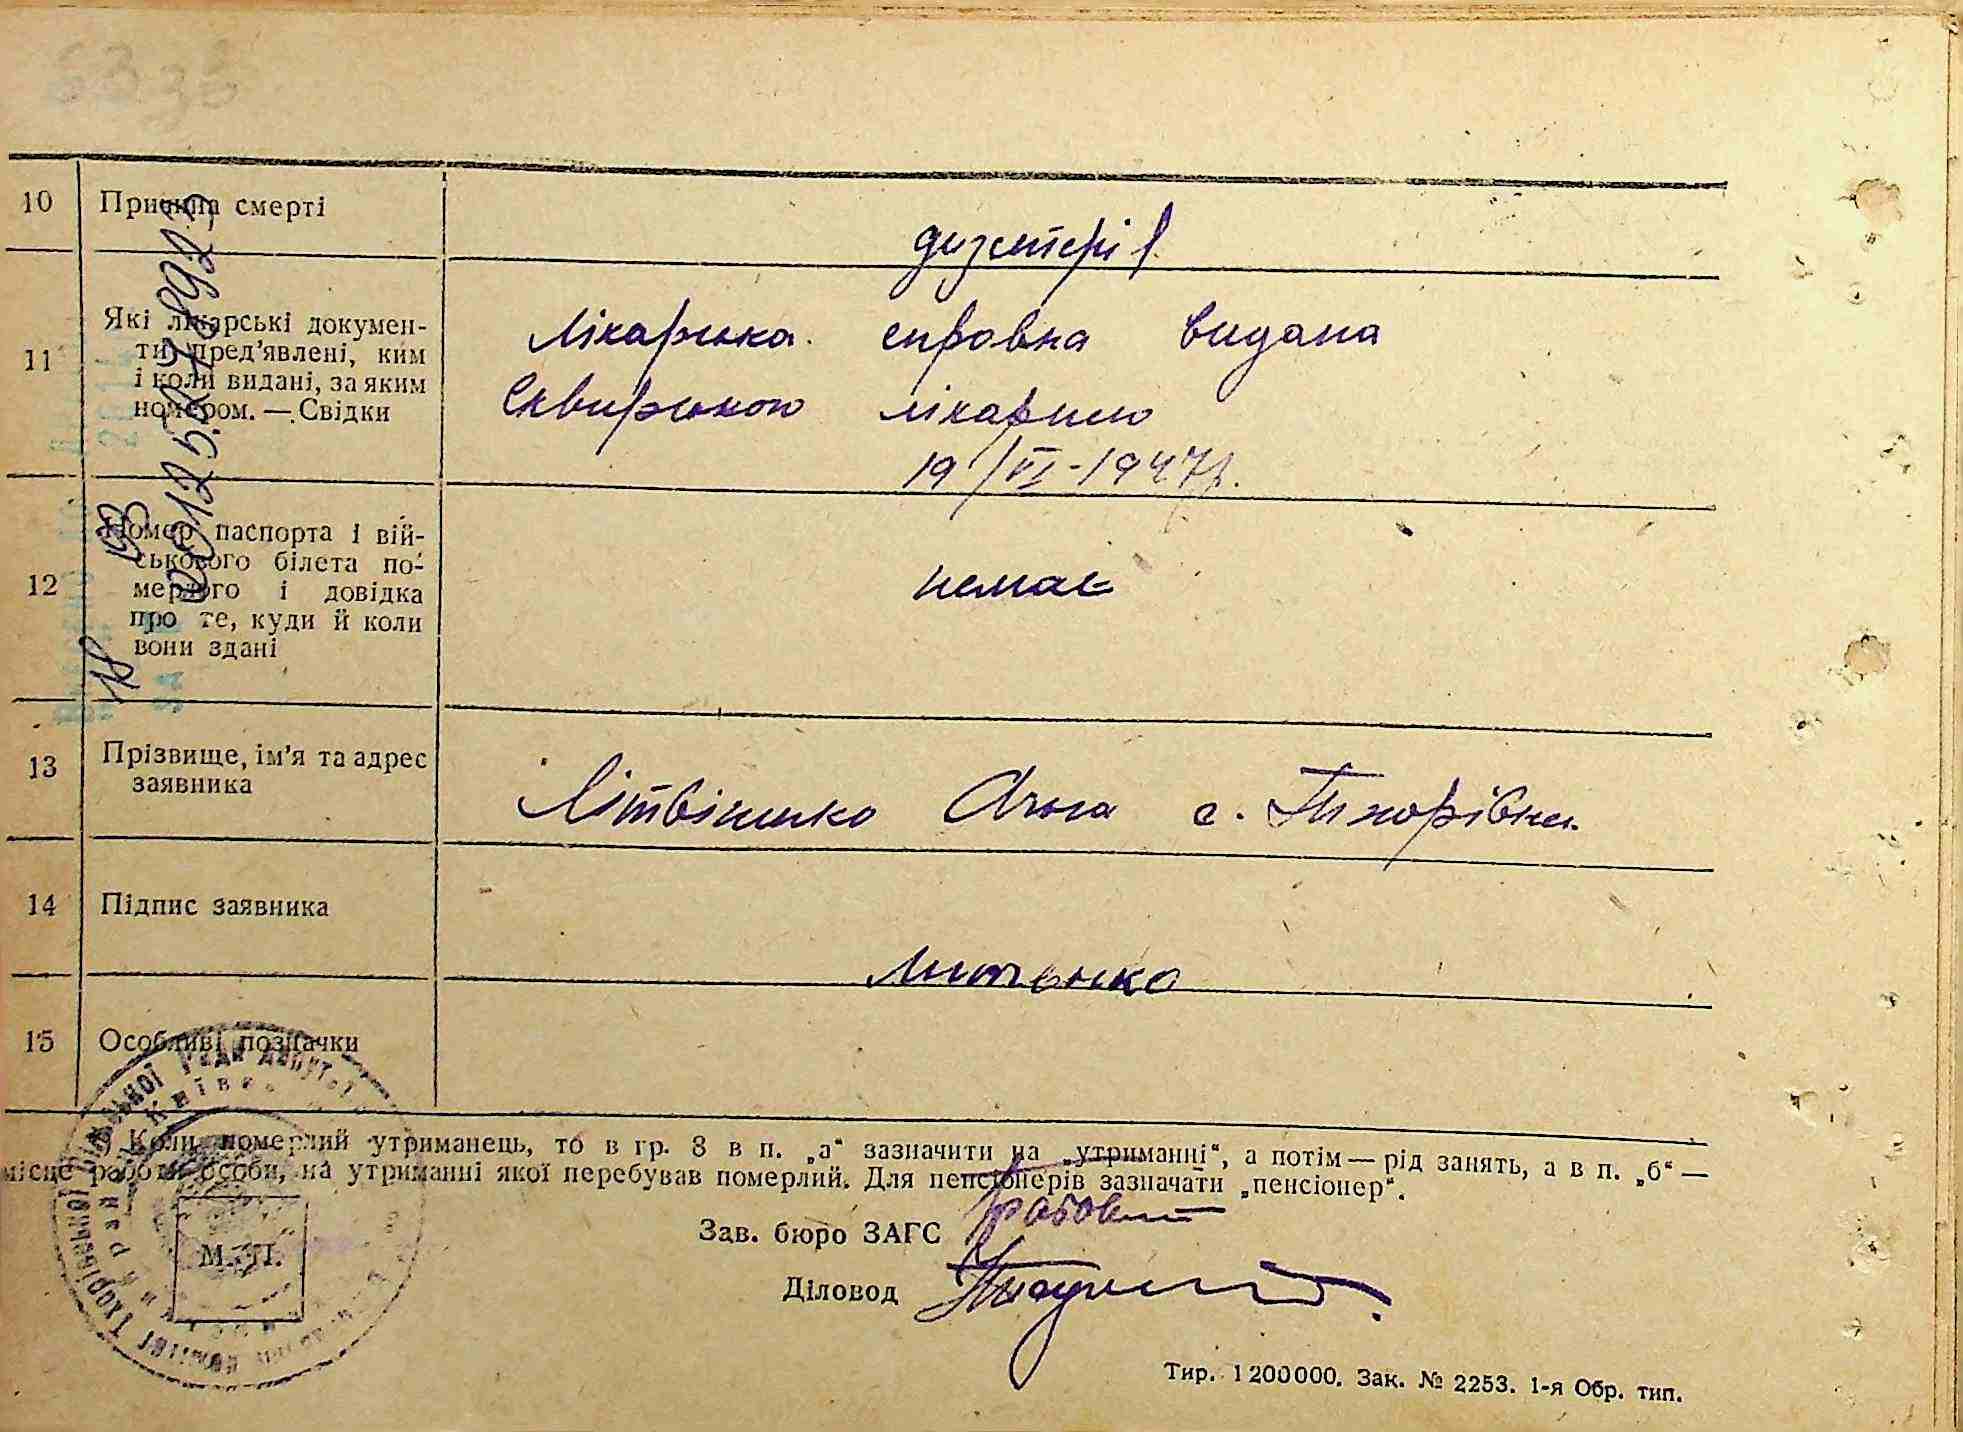 10 Причина смерті
дизентерія
11 Які лікарські докумен-
ти пред'явлені, ким
і коли видані, за яким
номером. — Свідки
Лікарська справка видана
Сквирською лікарнею
19/VI-1947р.
12 Номер паспорта і вій-
ськового білета по-
мерлого і довідка
про те, куди й коли
вони здані
немає
13 Прізвище, ім'я та адрес
заявника
Літвіненко Ольга с. Тхорівка
14 Підпис заявника
15 Особливі позначки
Коли померлий утриманець, то в гр. 8 в п. „а“ зазначити на „утриманні“, а потім — рід занять, а в п. „б“ —
місце роботи особи, на утриманні якої перебував померлий. Для пенсіонерів зазначати „пенсіонер“.
Зав. бюро ЗАГС
Діловод
М. П.
Тир. 1200000. Зак. № 2253. 1-я Обр. тип.